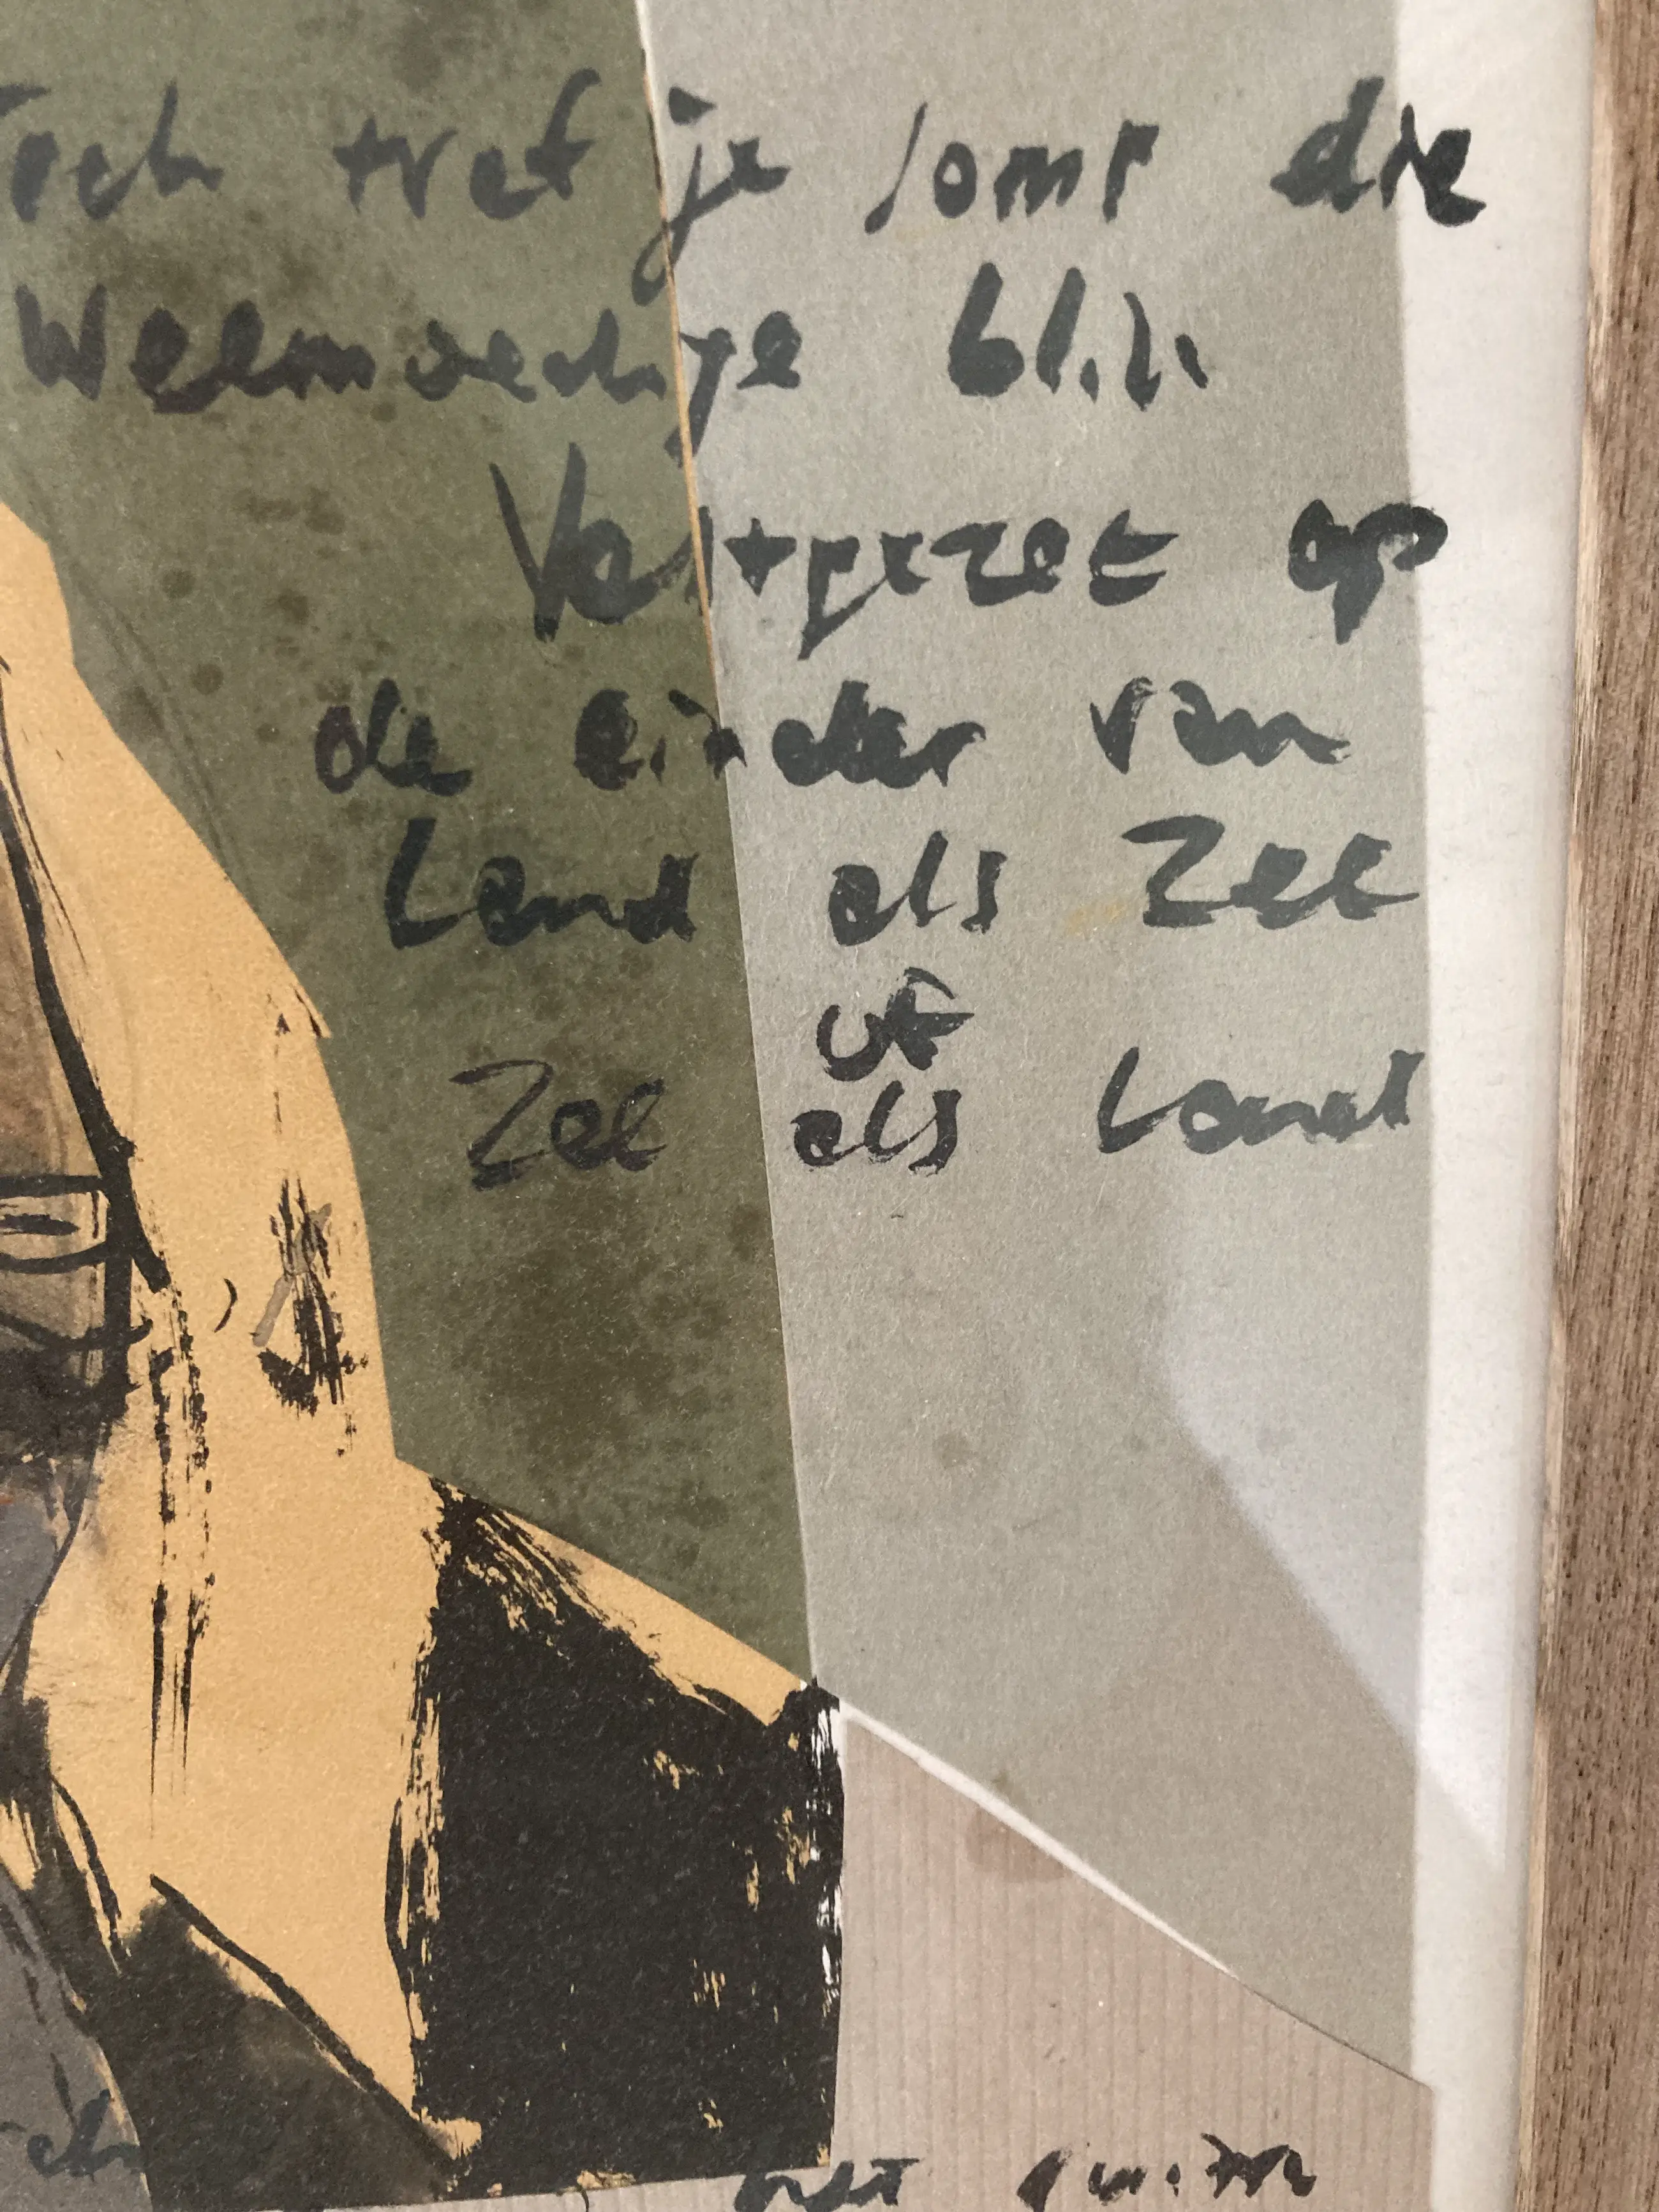 Toch tref je soms die
Weemoedige blik
Vastgezet op
de einder van
Land als Zee
of
Zee als Land
het